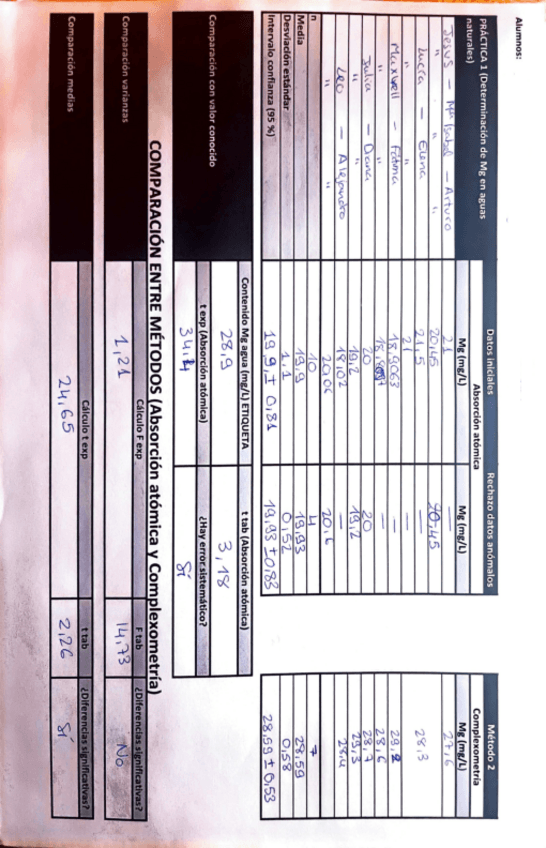 Alumnos:
PRÁCTICA 1 (Determinación de Mg en aguas naturales) Datos iniciales Rechazo datos anómalos Método 2
Absorción atómica Complexometría
Mg (mg/L) Mg (mg/L) Mg (mg/L)
Jesús — Mª Isabel — Arturo 21 — 27,6
" " " 20,45 20,45
Lucía — Elena 21,5 — 28,3
" 21 —
Maxwell — Fátima 18,9063 — 29,2
" — 28,6
Julia — Diana 20 20 28,7
" 19,2 19,2 29,3
Leo — Alejandro 18,02 — 28,4
" 20,06
n 10 4 7
Media 19,9 19,93 28,59
Desviación estándar 1,1 0,52 0,58
Intervalo confianza (95 %) 19,9 ± 0,81 19,93 ± 0,83 28,59 ± 0,53
Comparación con valor conocido
Contenido Mg agua (mg/L) ETIQUETA t tab (Absorción atómica)
28,9 3,18
t exp (Absorción atómica) ¿Hay error sistemático?
Sí
COMPARACIÓN ENTRE MÉTODOS (Absorción atómica y Complexometría)
Comparación varianzas Cálculo F exp F tab ¿Diferencias significativas?
1,21 14,73 No
Comparación medias Cálculo t exp t tab ¿Diferencias significativas?
24,65 2,26 Sí